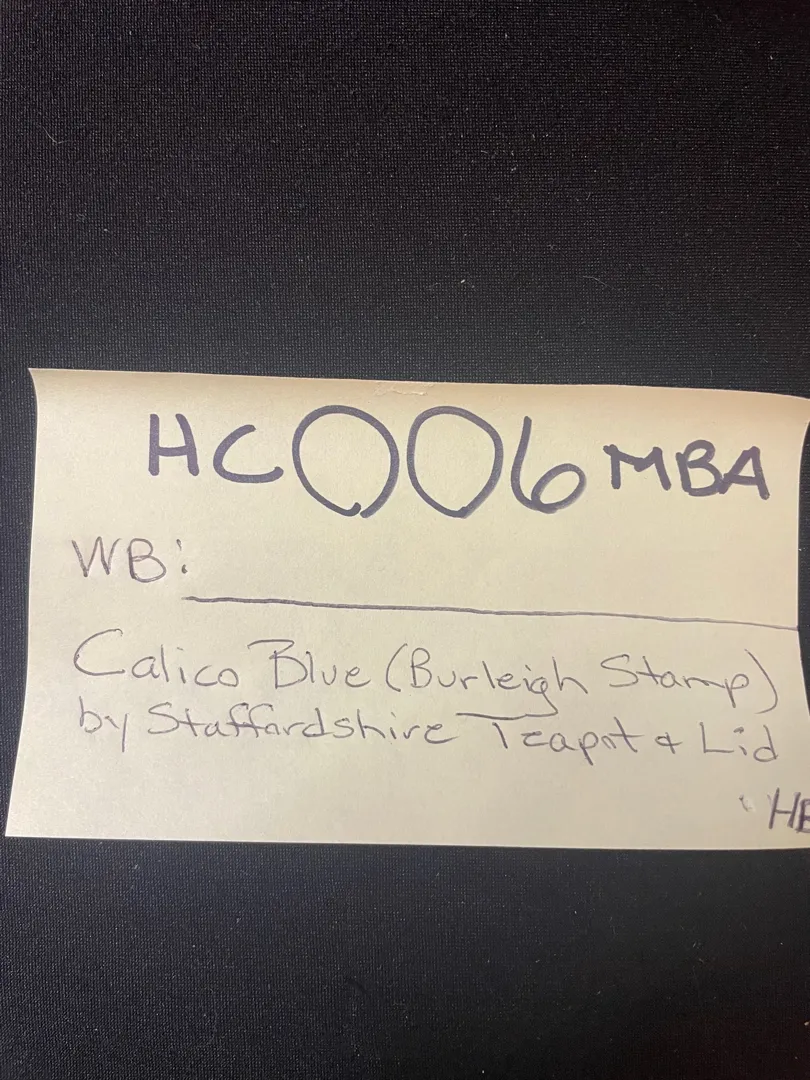 HC006 MBA
WB:
Calico Blue (Burleigh Stamp)
by Staffordshire Teapot & Lid